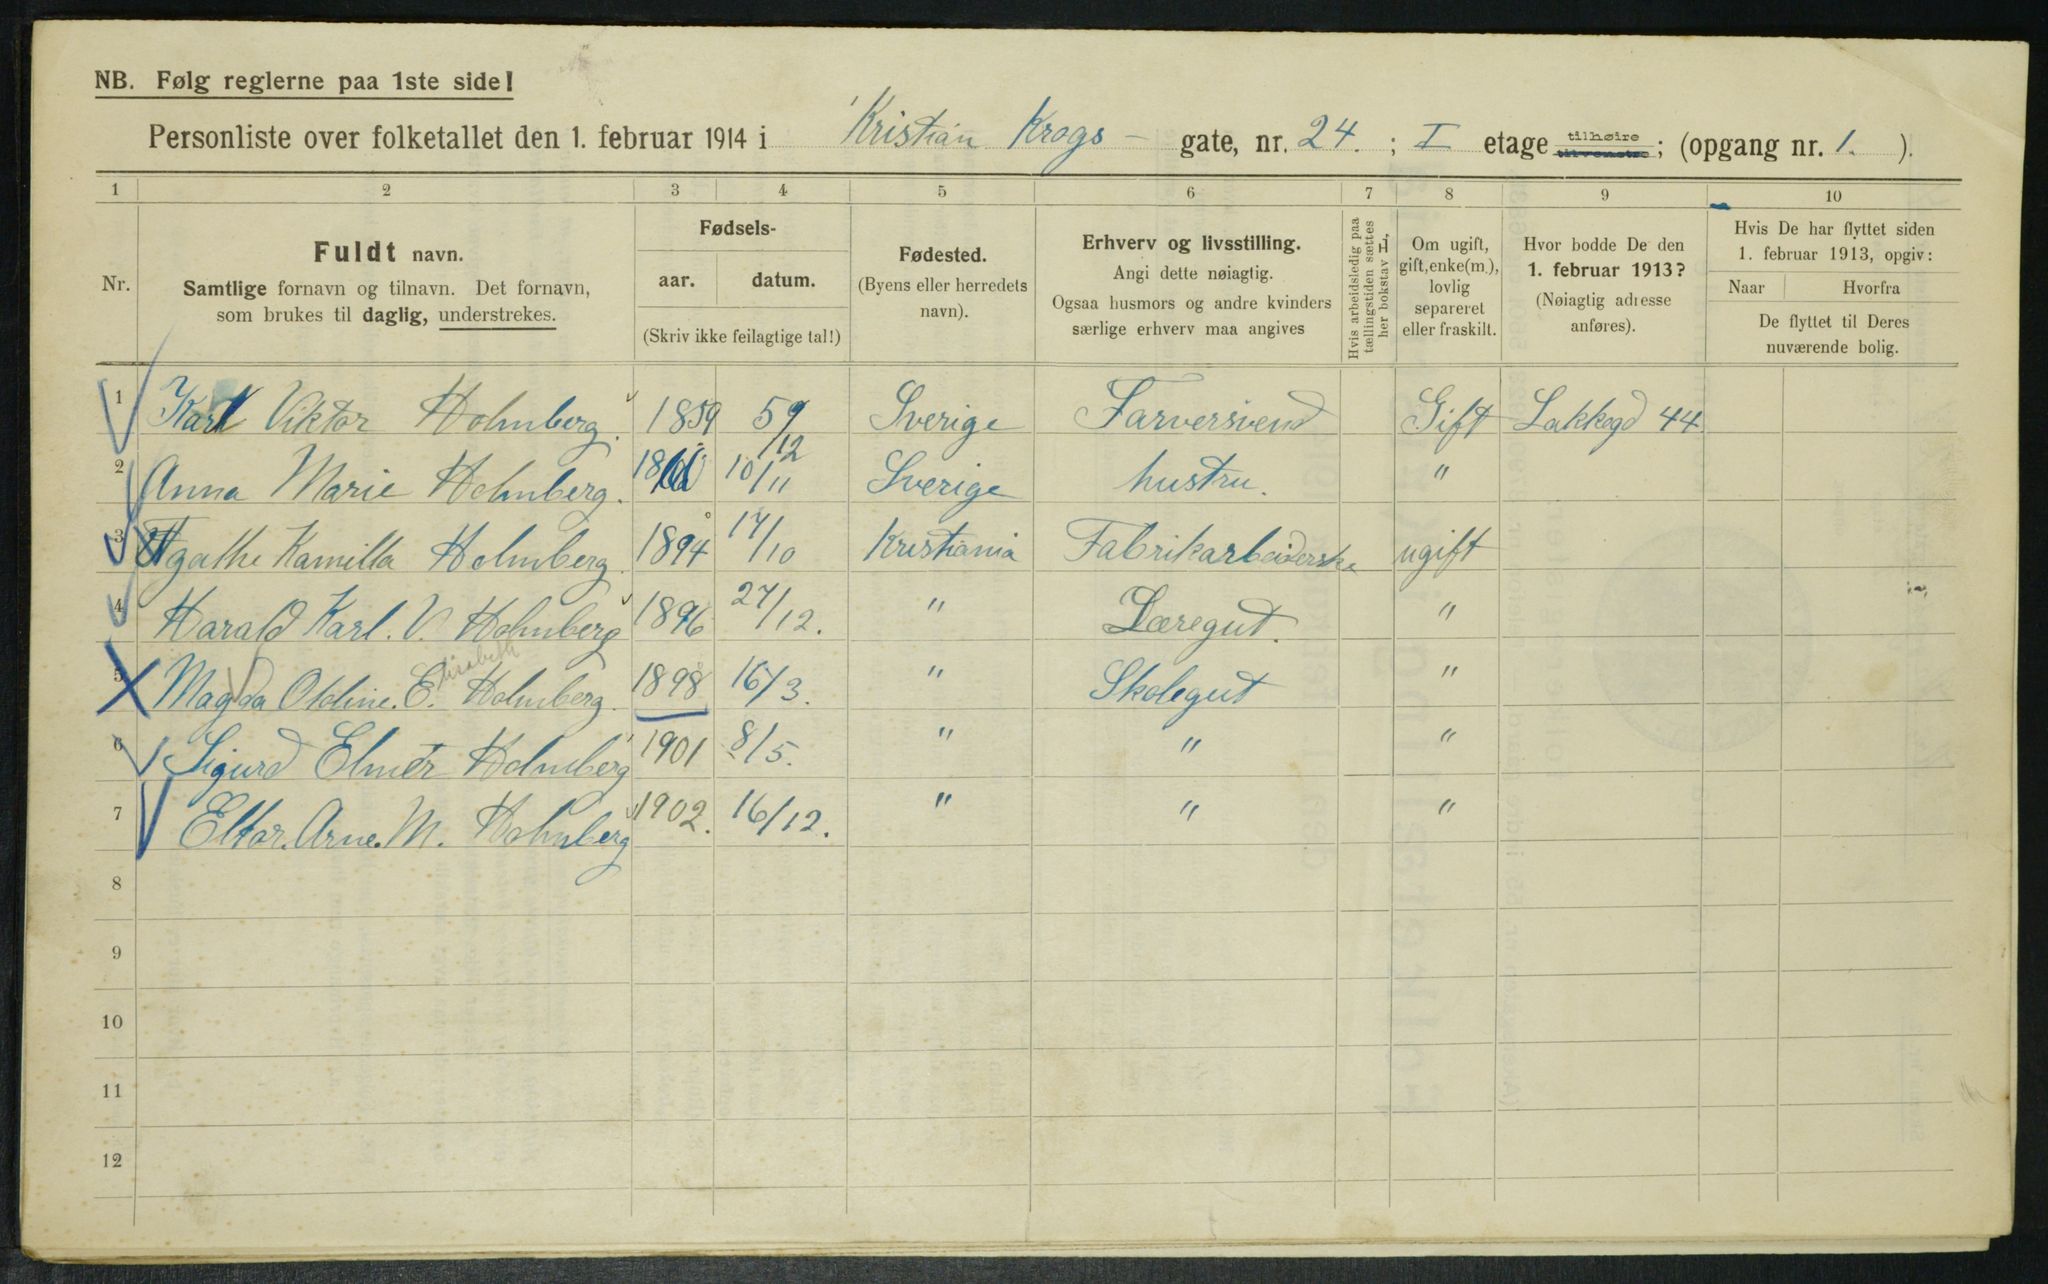 NB. Følg reglerne paa 1ste side!
Personliste over folketallet den 1. februar 1914 i Kristian Krogs - gate, nr. 24. ; I etage tilhøire tilvenstre; (opgang nr. 1. ).
1 2 3 4 5 6 7 8 9 10
Nr.
Fuldt navn.
Samtlige fornavn og tilnavn. Det fornavn,
som brukes til daglig, understrekes.
Fødsels-
aar. datum.
(Skriv ikke feilagtige tal!)
Fødested.
(Byens eller herredets
navn).
Erhverv og livsstilling.
Angi dette nøiagtig.
Ogsaa husmors og andre kvinders
særlige erhverv maa angives
Hvis arbeidsledig paa
tællingstiden sættes
her bokstav H,
Om ugift,
gift, enke(m.),
lovlig
separeret
eller fraskilt.
Hvor bodde De den
1. februar 1913?
(Nøiagtig adresse
anføres).
Hvis De har flyttet siden
1. februar 1913, opgiv:
Naar Hvorfra
De flyttet til Deres
nuværende bolig.
1 Karl Viktor Holmberg. 1859 5/12 Sverige Farversvend Gift Lakkegd 44.
2 Anna Marie Holmberg. 10/11 Sverige hustru. "
3 Agathe Kamilla Holmberg. 1894 17/10 Kristiania Fabrikarbeiderske ugift
4 Harald Karl. V. Holmberg 1896 27/12. " Læregut. "
5 Magda Oldine. E. lisabeth Holmberg. 1898 16/3. " Skolegut "
6 Sigurd Elmer Holmberg 1901 8/5. " " "
7 Eltor. Arne. M. Holmberg 1902. 16/12. " " "
8
9
10
11
12